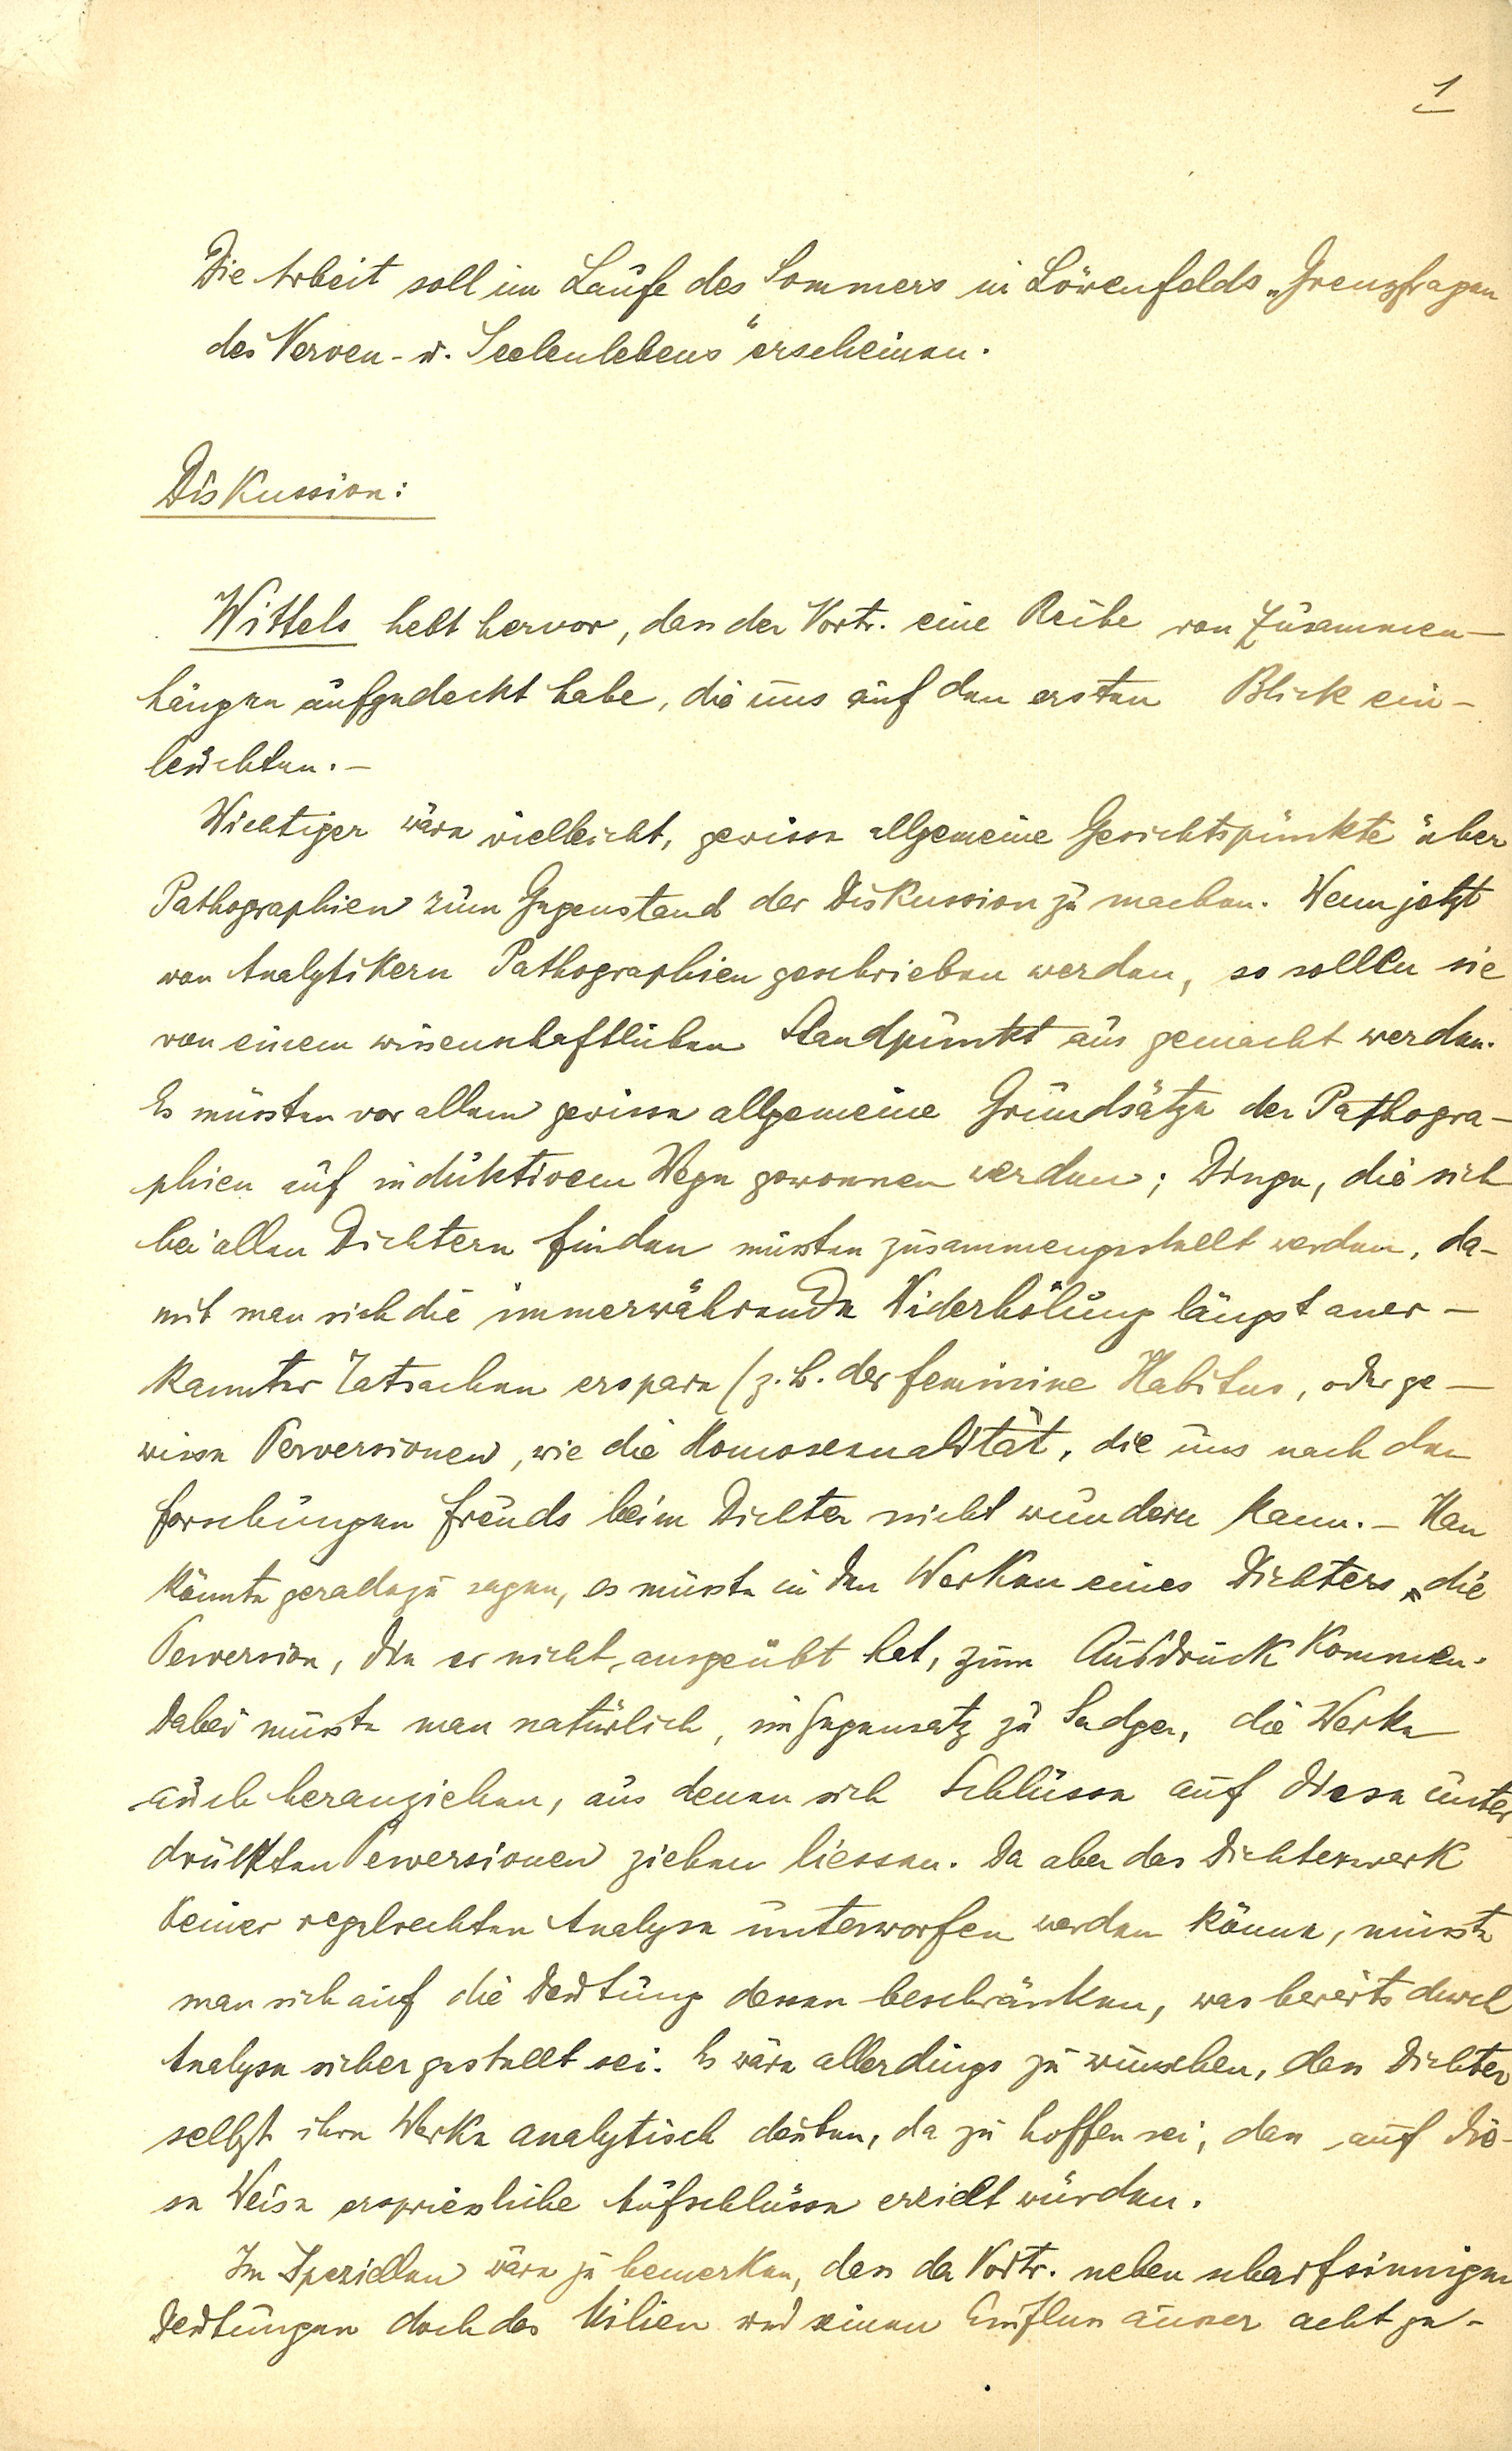 1
Die Arbeit soll im Laufe des Sommers in Löwenfelds „Grenzfragen
des Nerven- u. Seelenlebens" erscheinen.
Diskussion:
Wittels hebt hervor, dass der Vortr. eine Reihe von Zusammen-
hängen aufgedeckt habe, die uns auf den ersten Blick ein-
leuchten. –
Wichtiger wäre vielleicht, gewisse allgemeine Gesichtspunkte über
Pathographien zum Gegenstand der Diskussion zu machen. Wenn jetzt
von Analytikern Pathographien geschrieben werden, so sollen sie
von einem wissenschaftlichen Standpunkt aus gemacht werden.
Es müssten vor allem gewisse allgemeine Grundsätze der Pathogra-
phien auf induktivem Wege gewonnen werden; Dinge, die sich
bei allen Dichtern finden müssten zusammengestellt werden, da-
mit man sich die immerwährende Widerholung längst aner-
kannter Tatsachen erspare (z. B. der feminine Habitus, oder ge-
wisse Perversionen, wie die Homosexualität, die uns nach den
Forschungen Freuds beim Dichter nicht wundern kann. – Man
könnte geradezu sagen, es müsste in den Werken eines Dichters die
Perversion, die er nicht ausgeübt hat, zum Ausdruck kommen.
Dabei müsste man natürlich, im Gegensatz zu Sadger, die Werke
auch heranziehen, aus denen sich Schlüsse auf diese unter-
drückten Perversionen ziehen liessen. Da aber das Dichterwerk
keiner regelrechten Analyse unterworfen werden könne, müsste
man sich auf die Deutung dessen beschränken, was bereits durch
Analyse sichergestellt sei. Es wäre allerdings zu wünschen, dass Dichter
selbst ihre Werke analytisch deuten, da zu hoffen sei, dass auf die-
se Weise erspriessliche Aufschlüsse erzielt würden.
Im Speziellen wäre zu bemerken, dass der Vortr. neben scharfsinnigen
Deutungen doch das Milieu und seinen Einfluss ausser acht ge-